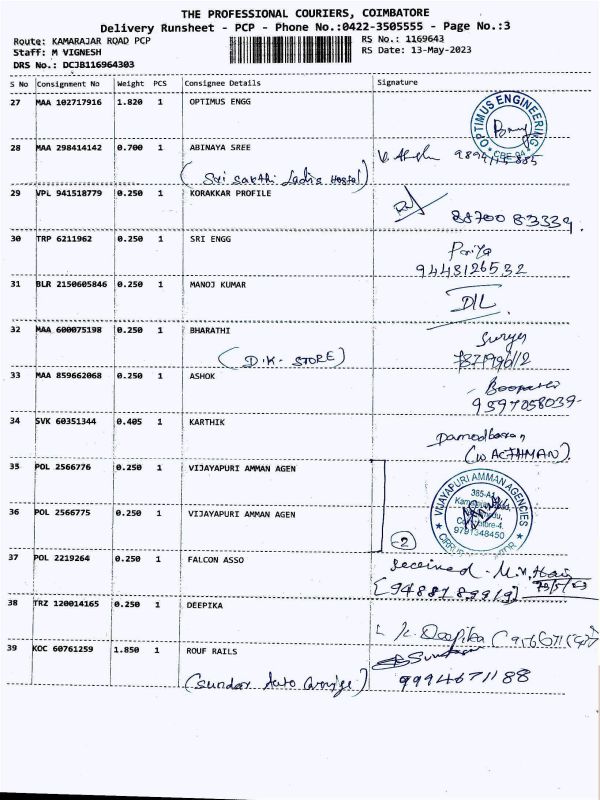 THE PROFESSIONAL COURIERS, COIMBATORE
Delivery Runsheet - PCP - Phone No.:0422-3505555 - Page No.:3
Route: KAMARAJAR ROAD PCP RS No.: 1169643
Staff: M VIGNESH RS Date: 13-May-2023
DRS No.: DCJB116964303
S No Consignment No Weight PCS Consignee Details Signature
27 MAA 102717916 1.820 1 OPTIMUS ENGG
OPTIMUS ENGINEERING
28 MAA 298414142 0.700 1 ABINAYA SREE
(Sri Sakthi Ladis Hostel)
29 VPL 941518779 0.250 1 KORAKKAR PROFILE
88700 83339.
30 TRP 6211962 0.250 1 SRI ENGG
Pariya
9443126532
31 BLR 2150605846 0.250 1 MANOJ KUMAR
32 MAA 600075198 0.250 1 BHARATHI
(D.K. STORE)
Surya
33 MAA 859662068 0.250 1 ASHOK
9597058039-
34 SVK 60351344 0.405 1 KARTHIK
(WACTHMAN)
35 POL 2566776 0.250 1 VIJAYAPURI AMMAN AGEN
VIJAYAPURI AMMAN AGENCIES
385-A1
9791548450
36 POL 2566775 0.250 1 VIJAYAPURI AMMAN AGEN
2
37 POL 2219264 0.250 1 FALCON ASSO
received.
38 TRZ 120014165 0.250 1 DEEPIKA
K. Deepika
39 KOC 60761259 1.850 1 ROUF RAILS
Sundar
(Sundar Auto
9994671188